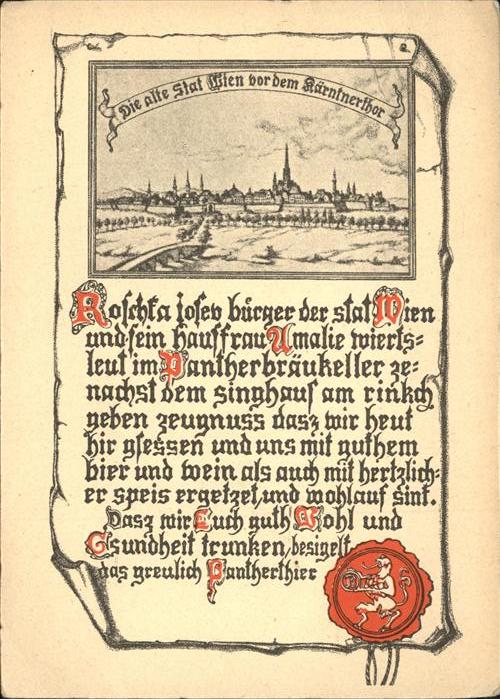 Die alte Stat Wien vor dem Kärntnerthor
Roschka Josev bürger der stat Wien
und sein hausfrau Amalie wierts=
leut im Pantherbräukeller ze=
nachst dem singhaus am rinkch
geben zeugnuss dasz wir heut
hir gsessen und uns mit guthem
bier und wein als auch mit hertzlich=
er speis ergetzet, und wohlauf sint.
Dasz wir Euch guth Wohl und
Gsundheit trunken, besigelt
das greulich Pantherthier